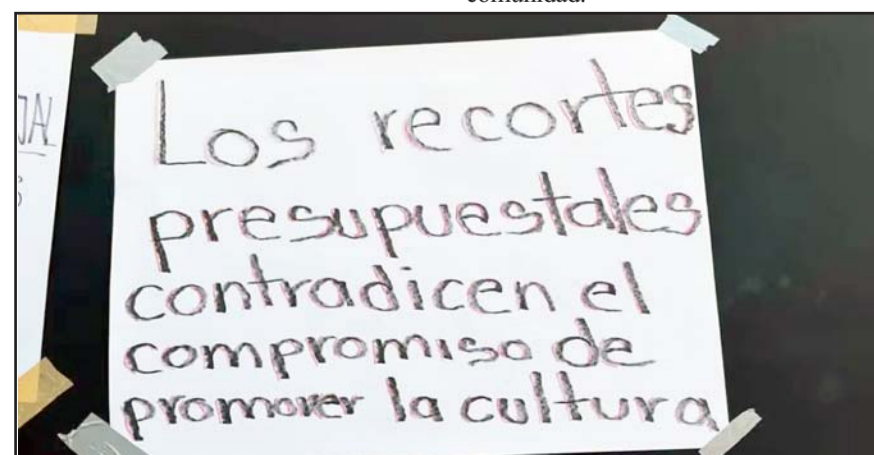 comunidad.
JAL
Los recortes
presupuestales
contradicen el
compromiso de
promover la cultura